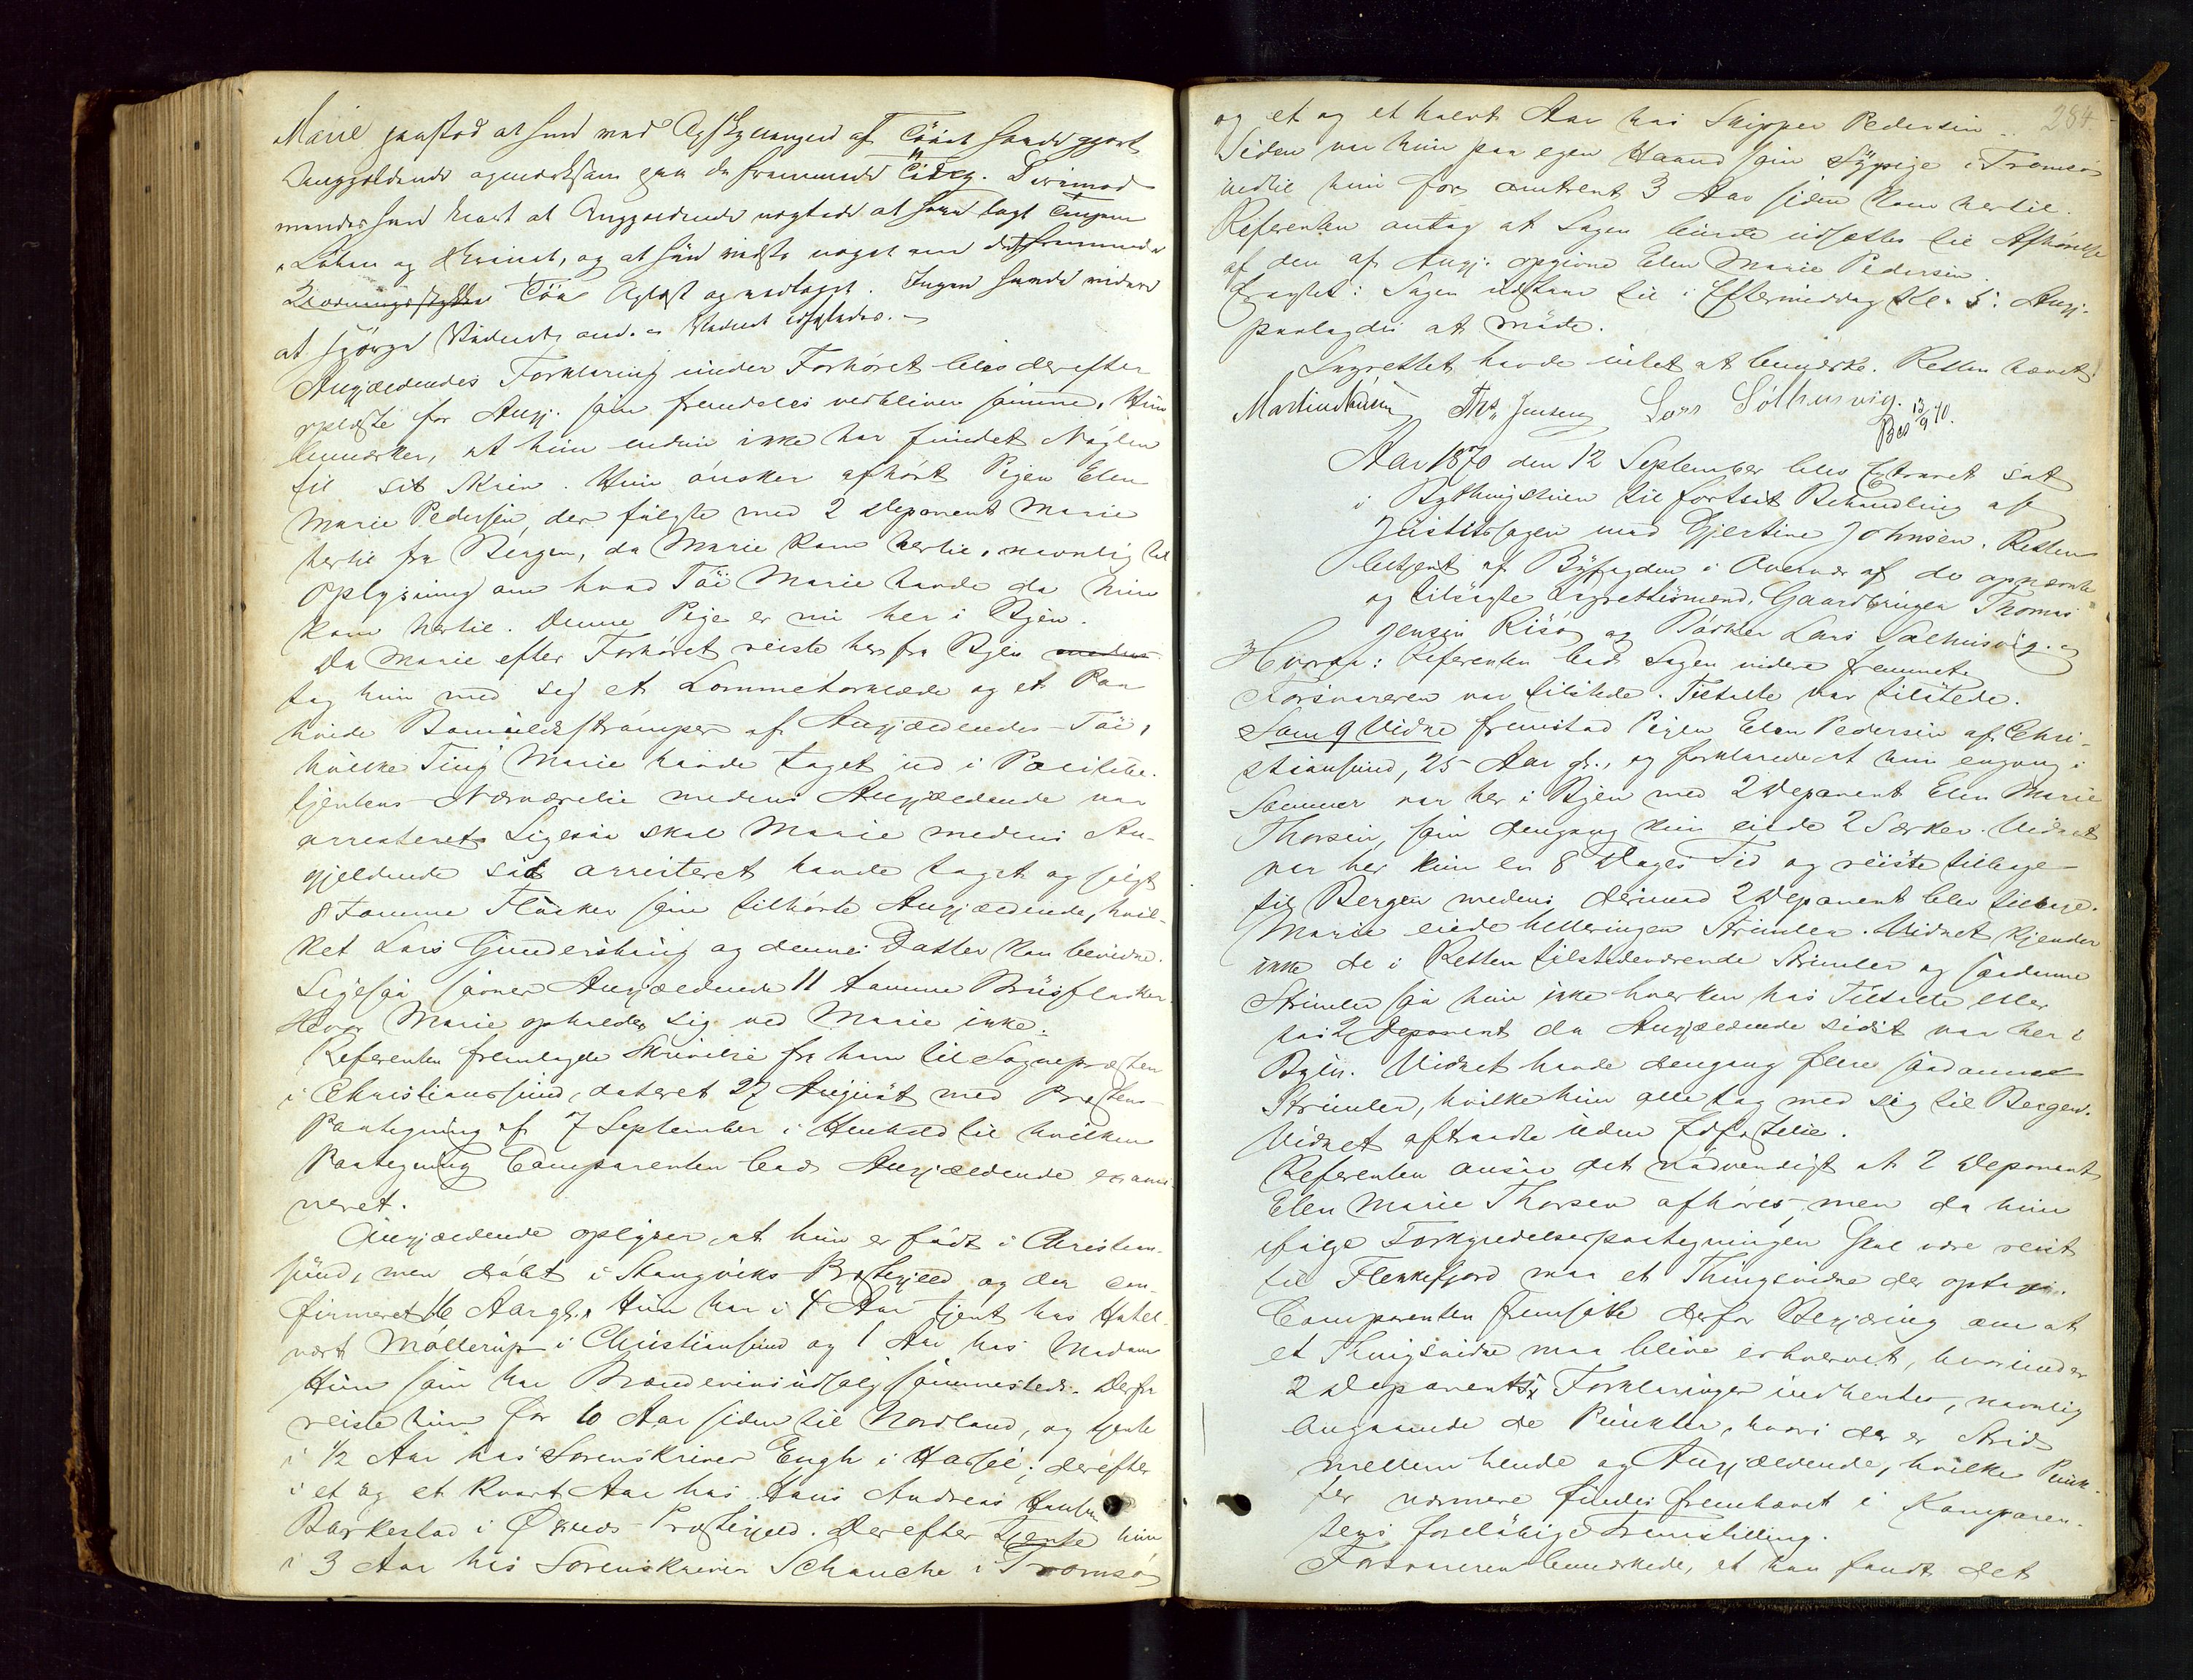 Marie paastod at hun ved Afskyllingen af Töiet havde gjort
Angjældende opmærksom paa de fremmede Töier. Derimod
at Angjældende nægtede at have lagt Töiet
og at hun vidste noget om det fremmede
Töi. Ingen havde videre
at spørge Vidnet om. Vidnet
Angjældendes Forklaring under Forhøret blev derefter
oplæst for Angj. som fremdeles vedbliver samme. Hun
bemærker, at hun endnu ikke har fundet Nøglen
til sit Skrin. Hun ønsker afhørt Pigen Elen
Marie Pedersen, der fulgte med 2 Deponent Marie
hertil fra Bergen, da Marie kom hertil, navnlig til
Oplysning om hvad Töi Marie havde da hun
kom hertil. Denne Pige er nu her i Byen.
Da Marie efter Forhøret reiste her fra Byen
tog hun med sig et Lommetørklæde og et Par
hvide Bomuldsstrømper af Angjældendes Töi,
hvilke Ting Marie havde taget ud i Politibe-
tjentens Nærværelse medens Angjældende var
arresteret. Ligesaa skal Marie medens An-
gjeldende sat arresteret havde taget og solgt
8 Tomme Flasker som tilhørte Angjældende, hvil-
ket Lars Gundersbing og dennes Datter kan bevidne.
Ligesaa savner Angjældende 11 tomme Brusflasker.
Hvor Marie opholder sig ved Marie ikke.
Referenten fremlagde Skrivelse fra ham til Sognepresten
i Christianssund, dateret 27 August med Prestens
Paategning af 7 September i Henhold til hvilken
Paategning Comparenten bad Angjældende exami-
neret.
Angjældende oplyser, at hun er født i Christian-
sund, men døbt i Stangviks Prestegjeld og der con-
firmeret 16 Aar gl. Hun har i 4 Aar tjent hos Hotel-
vert Møllerup i Christiansund og 1 Aar hos Madam
Hun som har Brændeviinsudsalg sammesteds. Derfra
reiste hun for 10 Aar siden til Nordland, og tjente
i 1/2 Aar hos Sorenskriver Engh i Hassel; derefter
i et og et kvart Aar hos Hans Andreas Hansen
Barkestad i Øxnes Prestegjeld. Derefter tjente hun
i 3 Aar hos Sorenskriver Schanche i Tromsø
284
og et og et halvt Aar hos Skipper Pedersen
Siden var hun paa egen Haand som Sypige i Tromsø
indtil hun for omtrent 3 Aar siden kom hertil.
Referenten antog at Sagen burde udsættes til Afhørelse
af den af Angj. opgivne Elen Marie Pedersen.
Eragtet: Sagen udstaar til i Eftermiddag Kl. 5. Angj.
paalagdes at møde.
Lagrettet havde intet at bemærke. Retten hævet.
Ths. Jensen Lars Sølhusvig.
Bes 13/9 70.
Aar 1870 den 12 September blev Extraret sat
i Bythingstuen til fortsat Behandling af
Justitssagen mod Gjertine Johnsen. Retten
betjent af Byfogden i Overvær af de opnævnte
og tilsagte Lagrettesmænd, Gaardbruger Thomas
Jensen Risø og Bødker Lars Sælhusvig.
Hvorda: Referenten bad Sagen videre fremmet.
Forsvareren var tilstede. Tiltalte var tilstede.
Som 9 Vidne fremstod Pigen Elen Pedersen af Chri-
stiansund, 25 Aar gl., og forklarede at hun engang i
Sommer var her i Byen med 2 Deponent Elen Marie
Thorsen, som dengang kun eiede 2 Særker. Vidnet
var her kun en 8 Dages Tid og reiste tilbage
til Bergen medens derimod 2 Deponent blev tilbage.
Marie eiede helleringen Strimler. Vidnet kjender
ikke de i Retten tilstedeværende Strimler og saadanne
Strimler saa hun ikke hverken hos Tiltalte eller
hos 2 Deponent da Angjældende sidst var her i
Byen. Vidnet havde dengang flere saadanne
Strimler, hvilke hun alle tog med sig til Bergen.
Vidnet aftraadte uden Edfæstelse.
Referenten ansaa det nødvendigt at 2 Deponent
Elen Marie Thorsen afhøres, men da hun
ifølge Forkyndelsespaategningen skal være reist
til Flekkefjord maa et Thingsvidne der optages.
Comparenten fremsatte derfor Begjæring om at
et Thingsvidne maa blive erhvervet, hvorunder
2 Deponents Forklaringer indhentes, navnlig
angaaende de Punkter, hvori der er Strid
mellem hende og Angjældende, hvilke Punk-
ter nærmere findes fremhævet i Komparen-
tens foreløbige Fremstilling.
Forsvareren bemærkede, at han fandt det